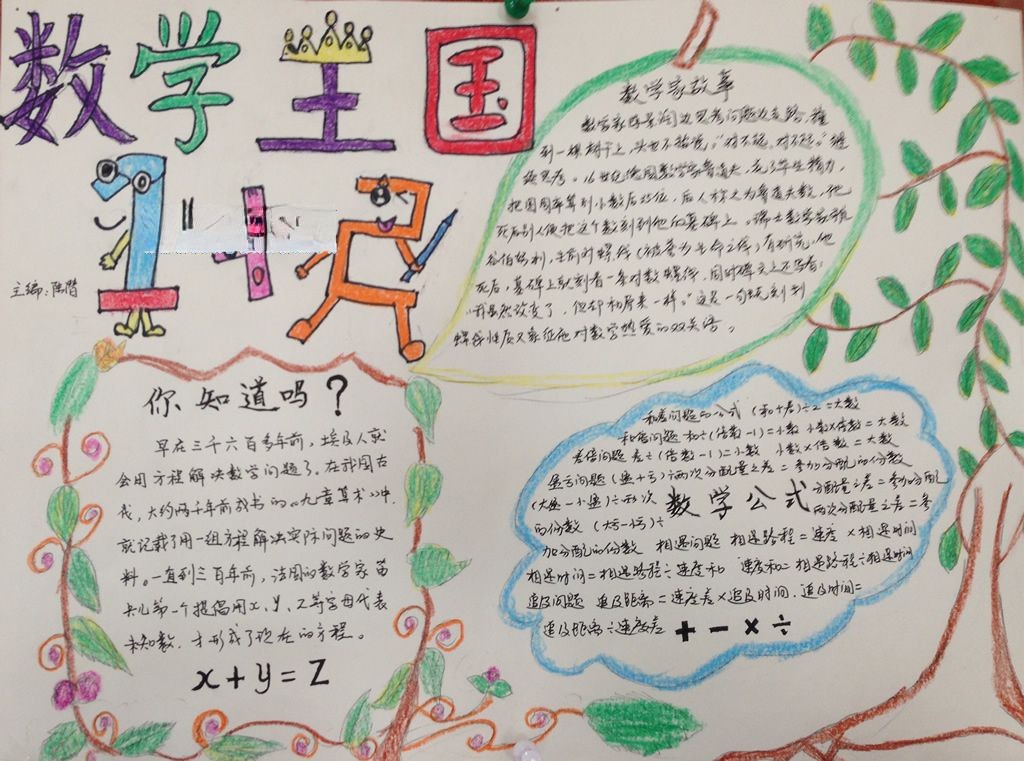 数学王国
1+2
主编:陆
数学家故事
数学家阿基 边思考问题边走路,撞
到一棵树干上,头也不抬说:“对不起,对不起。”继
续思考。16世纪德国数学家鲁道夫,花了毕生精力,
把圆周率算到小数后35位,后人称之为鲁道夫数,他
死后别人便把这个数刻到他的墓碑上。瑞士数学家雅
谷伯努利,生前对螺线(被誉为生命之线)有研究,他
死后,墓碑上就刻着一条对数螺线,同时碑文上还写着:
“我虽然改变了,但却和原来一样。”这是一句既刻划
螺线性质又象征他对数学热爱的双关语。
你知道吗?
早在三千六百多年前,埃及人就
会用方程解决数学问题了。在我国古
代,大约两千年前成书的《九章算术》中,
就记载了用一组方程解决实际问题的史
料。一直到三百年前,法国的数学家笛
卡儿第一个提倡用x、y、z等字母代表
未知数,才形成了现在的方程。
x+y=z
和差问题的公式 (和+差)÷2=大数
和倍问题 和÷(倍数-1)=小数 小数×倍数=大数
差倍问题 差÷(倍数-1)=小数 小数×倍数=大数
盈亏问题(盈+亏)÷两次分配量之差=参加分配的份数
(大盈-小盈)÷两次 分配量之差=参加分配
数学公式
的份数 (大亏-小亏)÷ 两次分配量之差=参
加分配的份数 相遇问题 相遇路程=速度 ×相遇时间
相遇时间=相遇路程÷速度和 速度和=相遇路程÷相遇时间
追及问题 追及距离=速度差×追及时间.追及时间=
追及距离÷速度差 + - × ÷